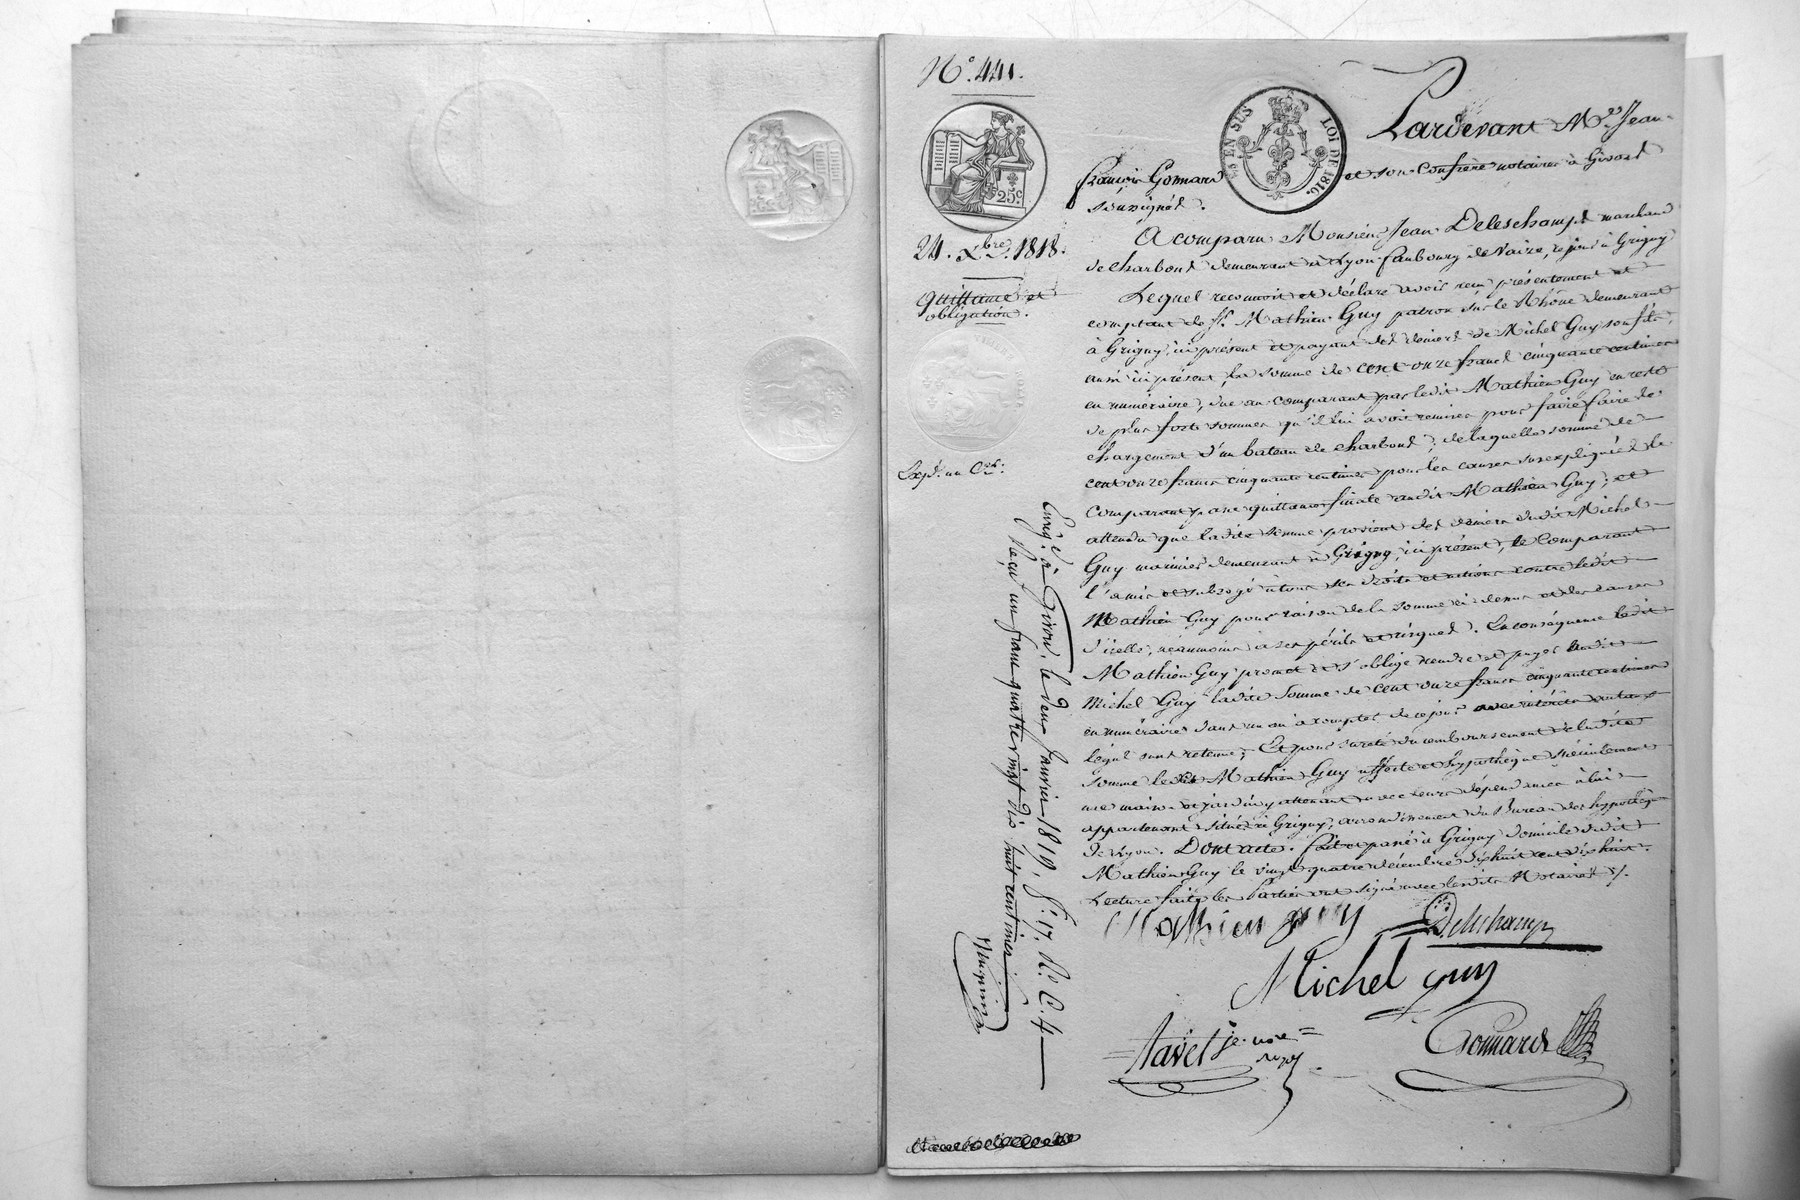 N.° 441.
25 EN SUS
LOI DE 1816.
25c
24. Xbre. 1818.
quittance et
obligation.
Expd. un Ex.
Pardevant Mes. Jean-
françois Gonnard et son Confrère notaires à Givors
soussignés.
A comparu Monsieur Jean Deleschamps marchand
de charbons demeurant à Lyon faubourg de Vaize, ce jour à Grigny
Lequel reconnoit et déclare avoir reçu présentement et
comptant de Sr. Mathieu Guy patron sur le Rhône demeurant
à Grigny, ici présent et payant des deniers de Michel Guy son fils,
aussi ici présent, la somme de cent onze francs cinquante centimes
en numéraire, due au comparant par ledit Mathieu Guy en reste
de plus forte somme qu'il lui avoit remise pour faire faire le
chargement d'un bateau de charbons; de laquelle somme de
cent onze francs cinquante centimes pour les causes susexpliquées le
Comparant passe quittance finale audit Mathieu Guy; et
attendu que ladite somme provient des deniers dudit Michel
Guy marinier demeurant à Grigny, ici présent, le Comparant
l'a mis et subrogé à tous ses droits et actions contre ledit
Mathieu Guy pour raison de la somme ci-dessus et des causes
d'icelle, néanmoins à ses périls et risques. En conséquence ledit
Mathieu Guy promet et s'oblige rendre et payer audit
Michel Guy ladite somme de cent onze francs cinquante centimes
en numéraire dans un an à compter de ce jour avec intérêts au taux
légal sans retenue; Et pour sureté du remboursement de ladite
somme ledit Mathieu Guy affecte et hypothèque spécialement
une maison et jardin y attenant avec leurs dépendances à lui
appartenant situés à Grigny, arrondissement du Bureau des hypothèques
de Lyon. Dont acte. fait et passé à Grigny domicile dudit
Mathieu Guy le vingt quatre décembre dix huit cent dix huit.
Lecture faite les Parties ont signé avec lesdits Notaires ./.
Mathieu guy
Deleschamps
Michel guy
Favel je. nore
Gonnard
Enreg. à Givors, le deux Janvier 1819, f.° 17, R.° C. 4
Reçu un franc quatre vingt dix huit centimes